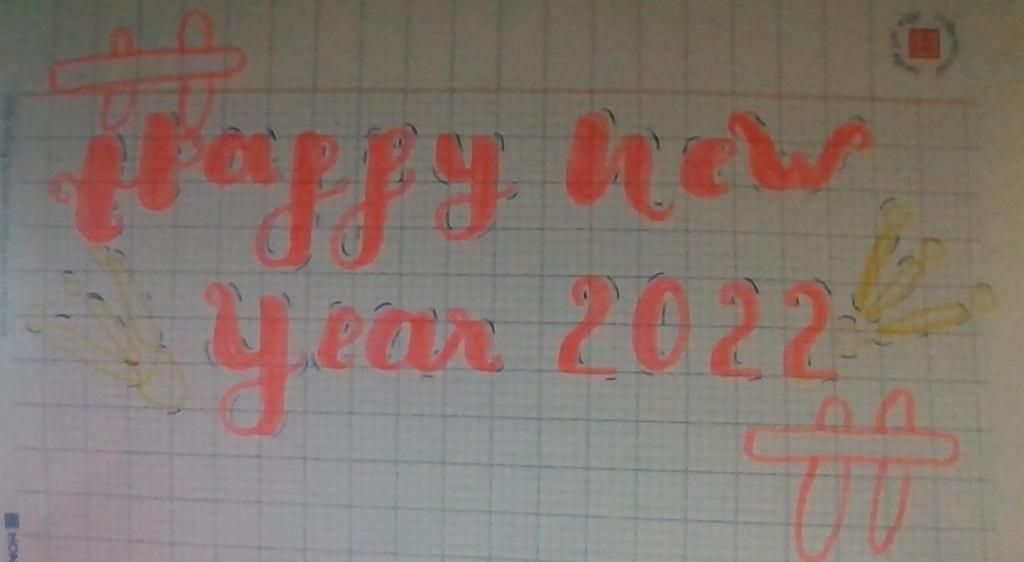 Happy new
year 2022